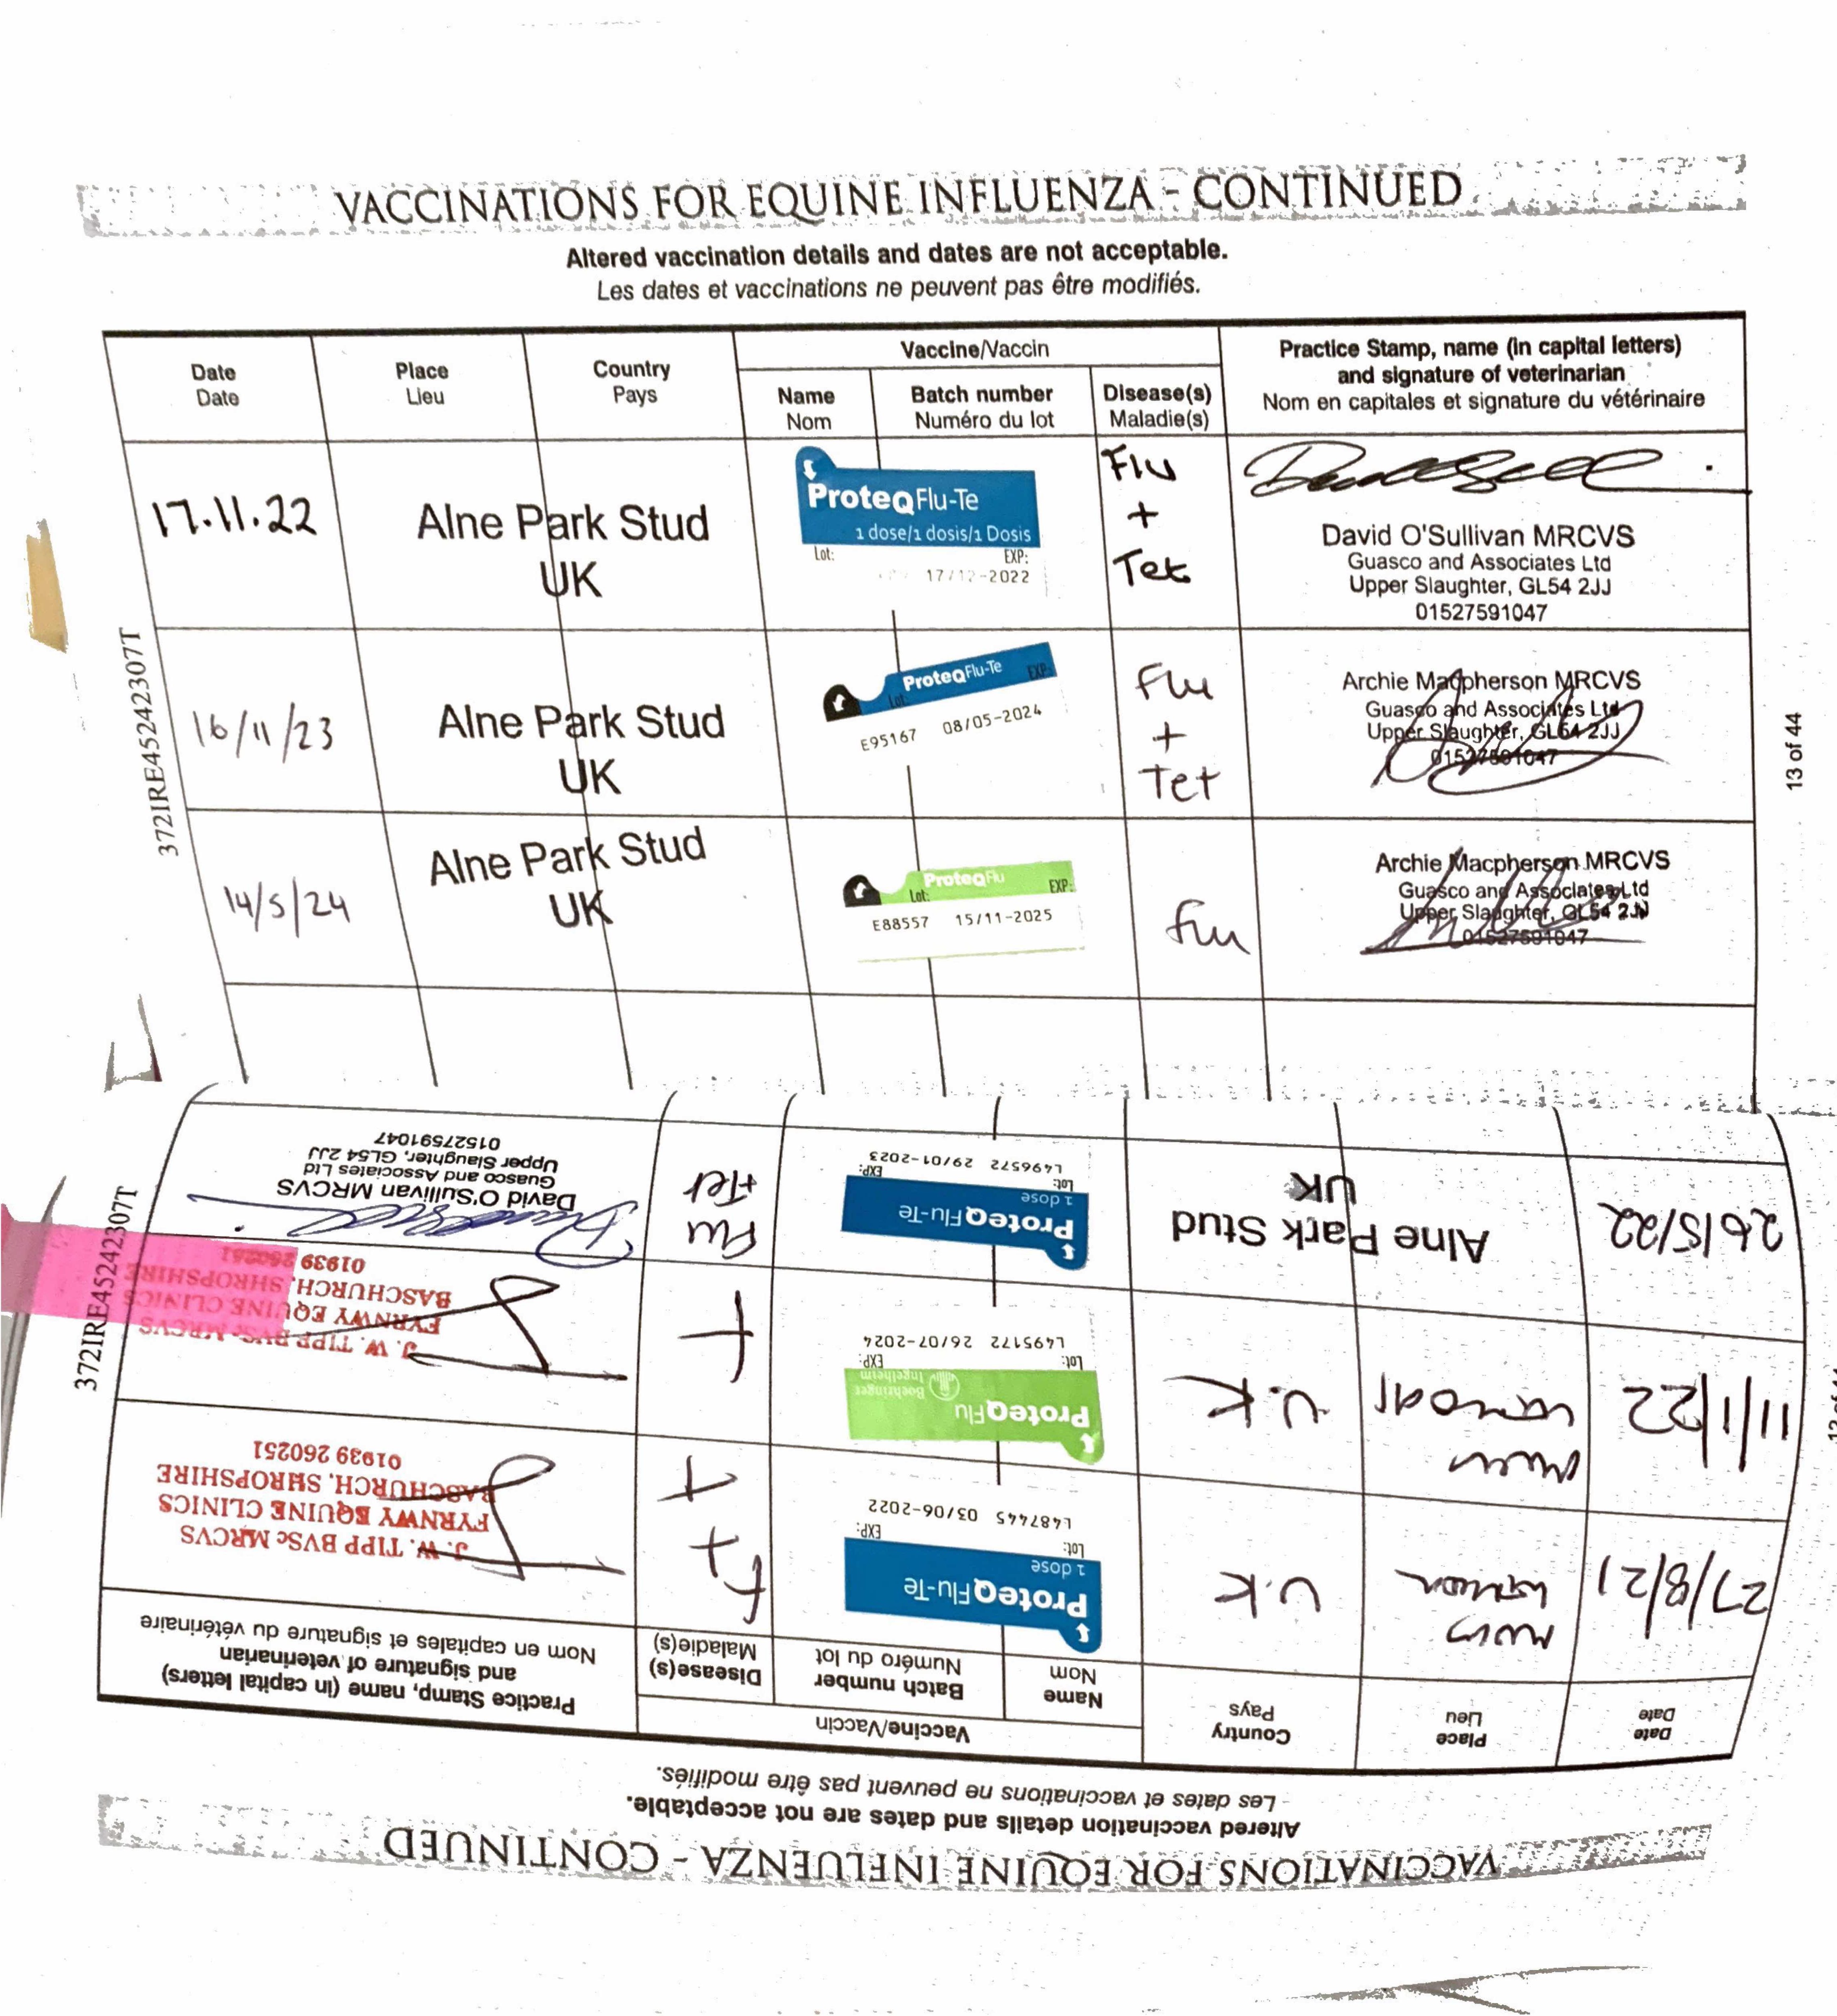 VACCINATIONS FOR EQUINE INFLUENZA - CONTINUED
Altered vaccination details and dates are not acceptable.
Les dates et vaccinations ne peuvent pas être modifiés.
Date
Date
Place
Lieu
Country
Pays
Vaccine/Vaccin
Name
Nom
Batch number
Numéro du lot
Disease(s)
Maladie(s)
Practice Stamp, name (in capital letters)
and signature of veterinarian
Nom en capitales et signature du vétérinaire
17.11.22
Alne Park Stud
UK
ProteqFlu-Te
1 dose/1 dosis/1 Dosis
Lot: EXP:
17/12-2022
Flu
+
Tet
David O'Sullivan MRCVS
Guasco and Associates Ltd
Upper Slaughter, GL54 2JJ
01527591047
16/11/23
Alne Park Stud
UK
ProteqFlu-Te
Lot: EXP:
E95167 08/05-2024
Flu
+
Tet
Archie Macpherson MRCVS
Guasco and Associates Ltd
Upper Slaughter, GL54 2JJ
01527591047
14/5/24
Alne Park Stud
UK
ProteqFlu
Lot: EXP:
E88557 15/11-2025
Flu
Archie Macpherson MRCVS
Guasco and Associates Ltd
Upper Slaughter, GL54 2JJ
01527591047
372IRE45242307T
13 of 44
VACCINATIONS FOR EQUINE INFLUENZA - CONTINUED
Altered vaccination details and dates are not acceptable.
Les dates et vaccinations ne peuvent pas être modifiés.
Date
Date
Place
Lieu
Country
Pays
Vaccine/Vaccin
Name
Nom
Batch number
Numéro du lot
Disease(s)
Maladie(s)
Practice Stamp, name (in capital letters)
and signature of veterinarian
Nom en capitales et signature du vétérinaire
27/8/21
U.K
ProteqFlu-Te
1 dose
Lot: EXP:
L487445 03/06-2022
F+
T
J. W. TIPP BVSc MRCVS
FYRNWY EQUINE CLINICS
BASCHURCH, SHROPSHIRE
01939 260251
11/1/22
U.K
ProteqFlu
Boehringer
Ingelheim
Lot: EXP:
L495172 26/07-2024
J. W. TIPP BVSc MRCVS
FYRNWY EQUINE CLINICS
BASCHURCH, SHROPSHIRE
01939 260251
26/5/22
Alne Park Stud
UK
ProteqFlu-Te
1 dose
Lot: EXP:
L496572 29/01-2023
Flu
+Tet
David O'Sullivan MRCVS
Guasco and Associates Ltd
Upper Slaughter, GL54 2JJ
01527591047
372IRE45242307T